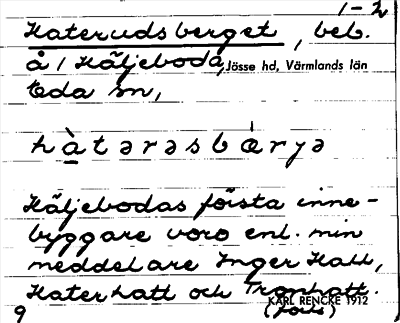 1-2
Haterudsberget, beb.
å / Häljeboda, Jösse hd, Värmlands län
Eda sn,
hàtərəsbæ̀rjə
Häljebodas första inne-
byggare voro enl. min
meddelare Inger Hatt,
Haterhatt och Tronhatt.
KARL RENCKE 1912
(forts)
9